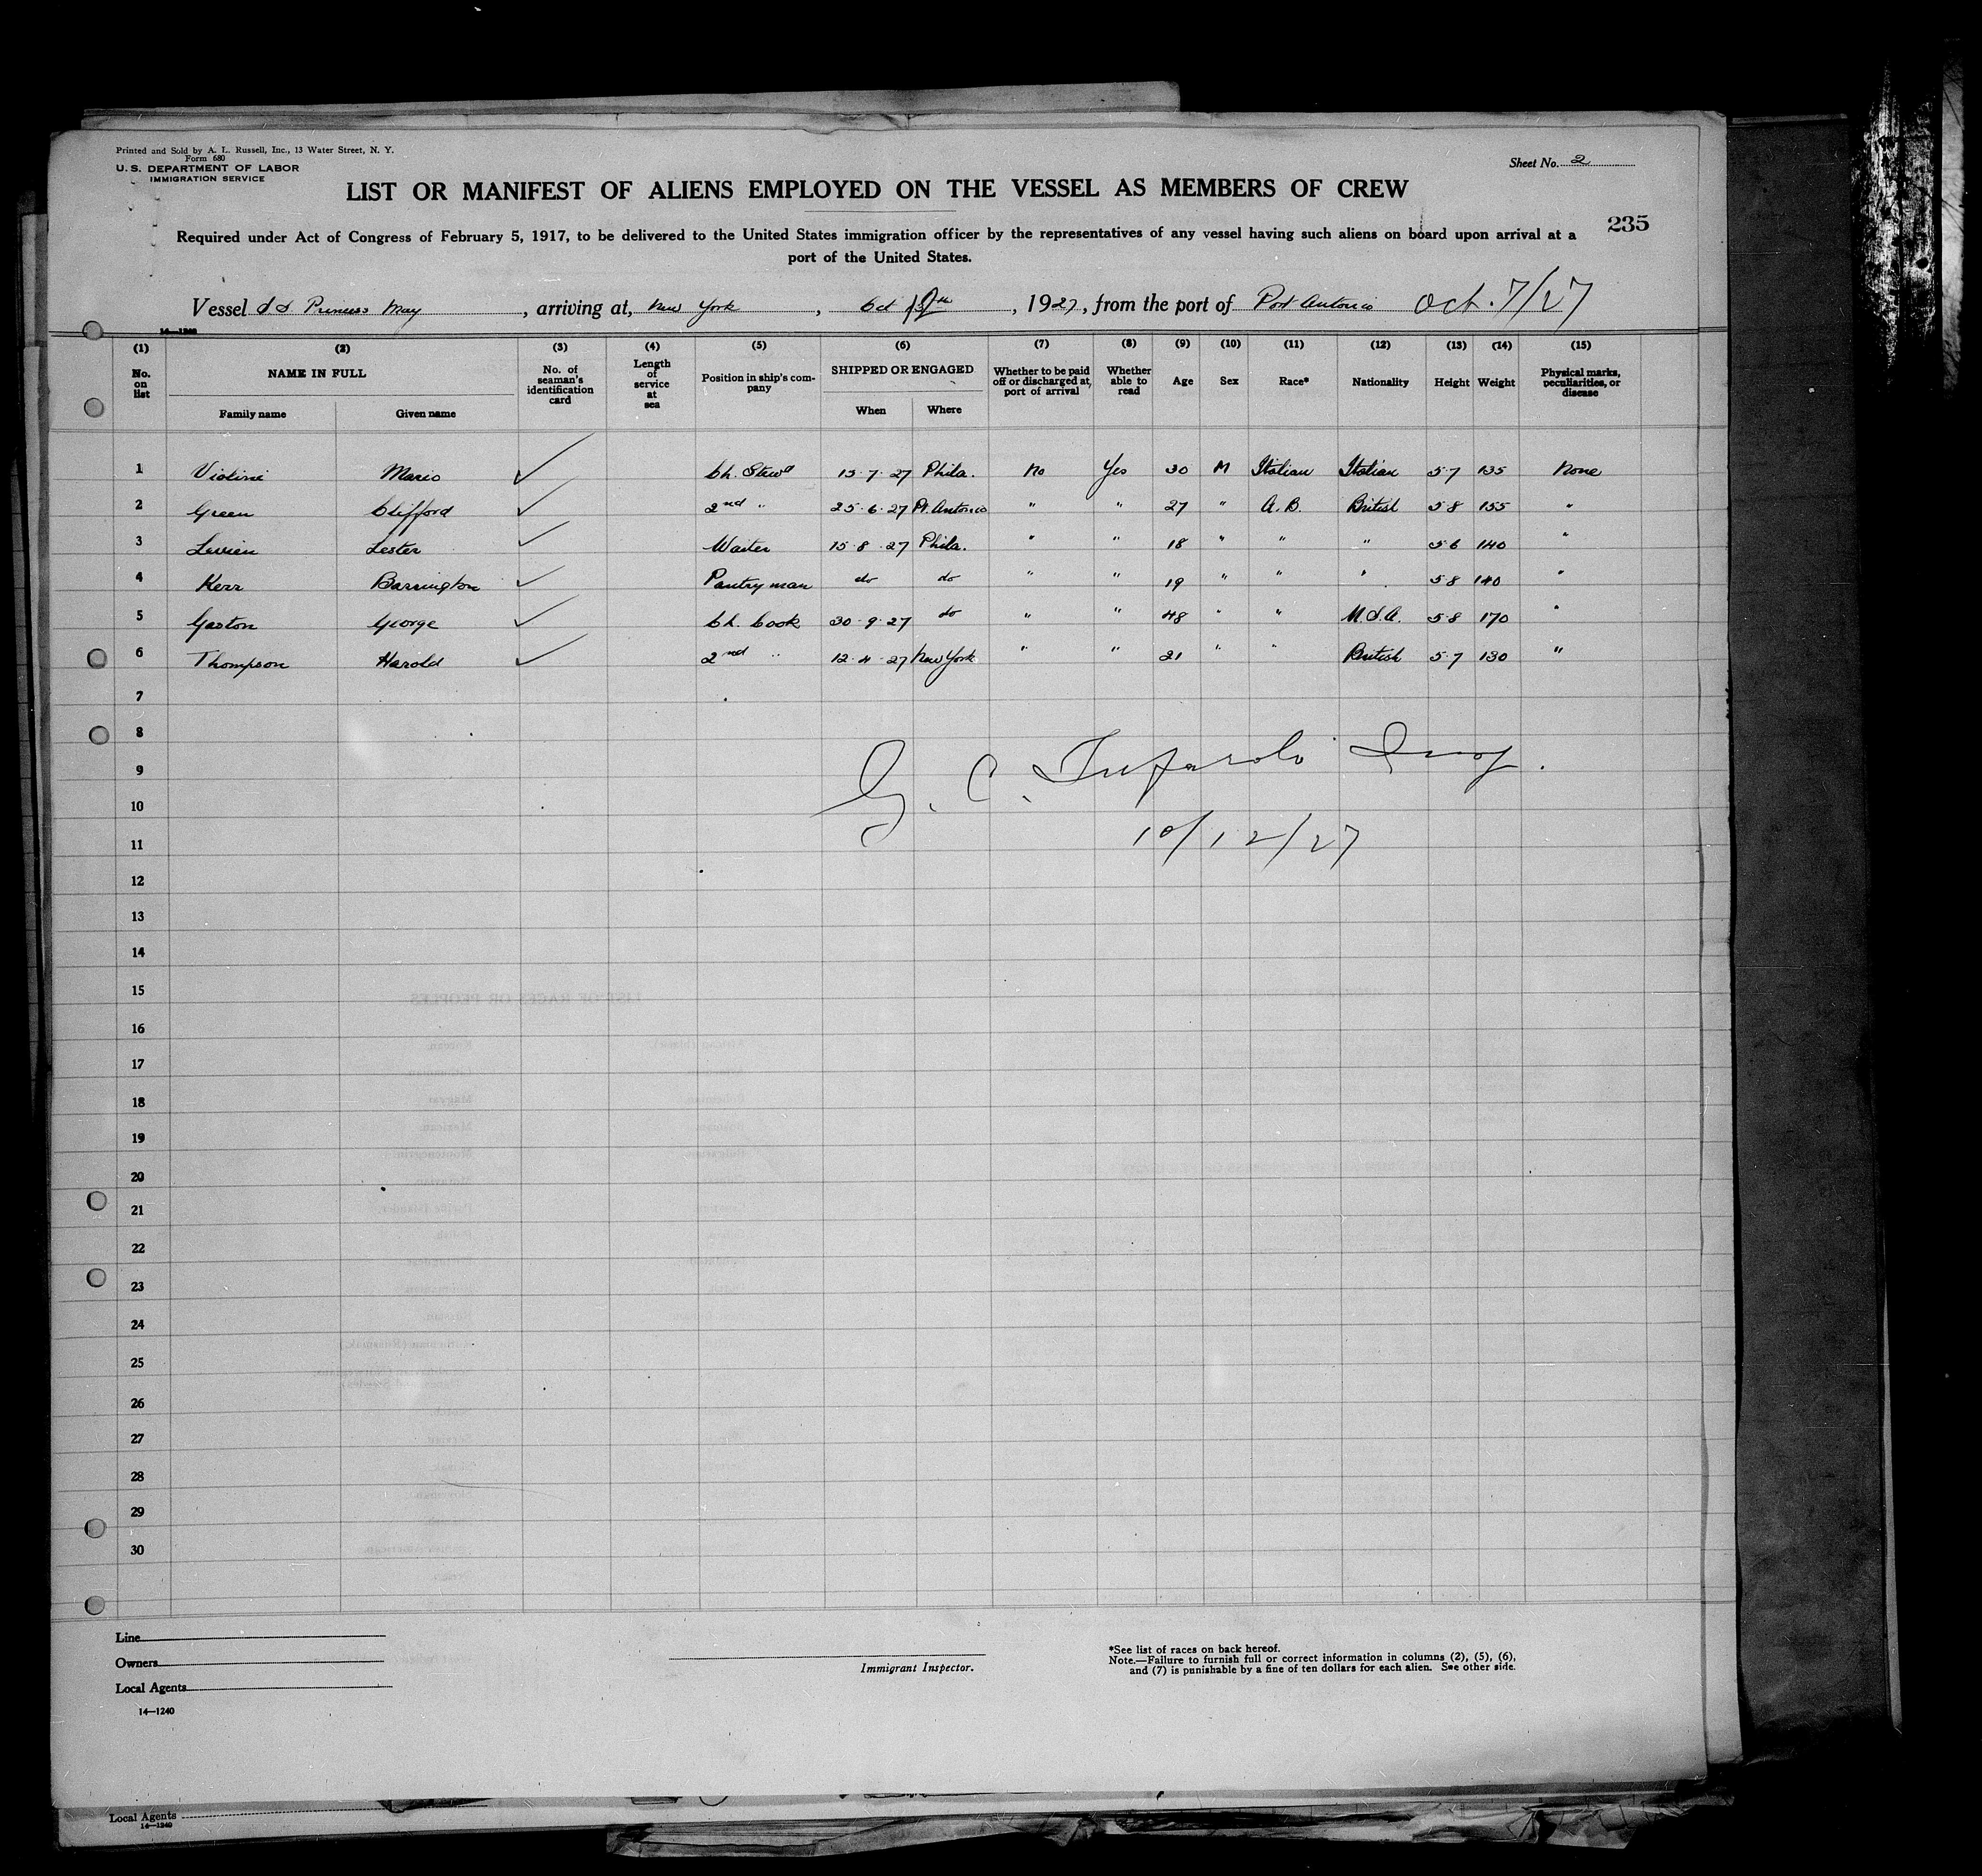 Printed and Sold by A. L. Russell, Inc., 13 Water Street, N. Y.
Form 680
U. S. DEPARTMENT OF LABOR
IMMIGRATION SERVICE
Sheet No. 2
LIST OR MANIFEST OF ALIENS EMPLOYED ON THE VESSEL AS MEMBERS OF CREW
235
Required under Act of Congress of February 5, 1917, to be delivered to the United States immigration officer by the representatives of any vessel having such aliens on board upon arrival at a
port of the United States.
Vessel SS Princess May, arriving at, New York, Oct, 1927, from the port of Port Antonio Oct. 7/27
14—1240
(1) (2) (3) (4) (5) (6) (7) (8) (9) (10) (11) (12) (13) (14) (15)
No. on list NAME IN FULL Family name Given name No. of seaman's identification card Length of service at sea Position in ship's company SHIPPED OR ENGAGED When Where Whether to be paid off or discharged at port of arrival Whether able to read Age Sex Race* Nationality Height Weight Physical marks, peculiarities, or disease
1 Mario Ch. Stewd 15·7·27 Phila. No Yes 30 M Italian Italian 5·7 135 None
2 Green Clifford 2nd " 25·6·27 Pt. Antonio " " 27 " A.B. British 5 8 155 "
3 Lester Waiter 15·8·27 Phila. " " 18 " " " 5 6 140 "
4 Kerr Barrington Pantry man do do " " 19 " " " 5 8 140 "
5 Gaston George Ch. Cook 30·9·27 do " " 48 " " U.S.A. 5 8 170 "
6 Thompson Harold 2nd " 12·4·27 New York " " 21 " " British 5·7 130 "
7
8
9
10
11
G. C. Insp.
10/12/27
12
13
14
15
16
17
18
19
20
21
22
23
24
25
26
27
28
29
30
Line
Owners
Local Agents
14—1240
Immigrant Inspector.
*See list of races on back hereof.
Note.—Failure to furnish full or correct information in columns (2), (5), (6),
and (7) is punishable by a fine of ten dollars for each alien. See other side.
Local Agents
14—1240